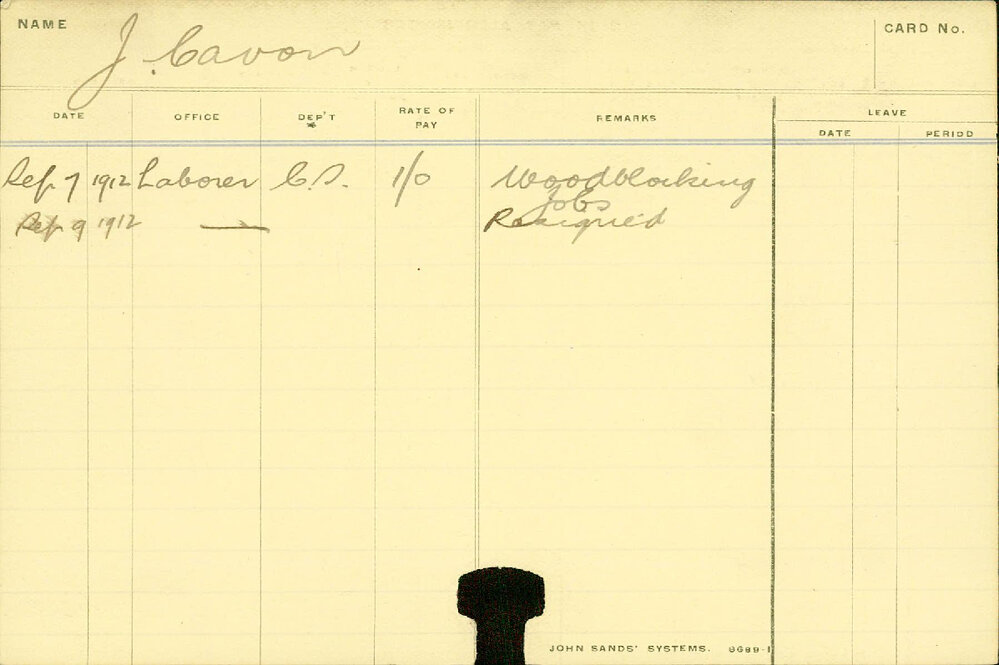 NAME J. Cavon CARD No.
DATE OFFICE DEP'T RATE OF PAY REMARKS LEAVE
DATE PERIOD
Sep 7 1912 Laborer C.S. 1/0 Woodblocking
Jobs
Sep 9 1912 — Resigned
JOHN SANDS' SYSTEMS. 8689-1